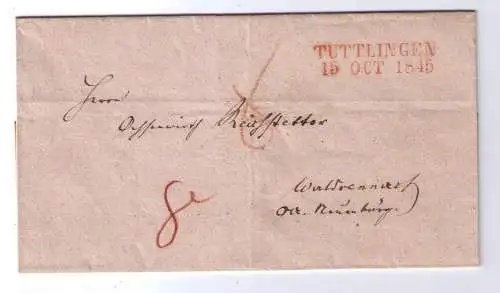 TUTTLINGEN
15 OCT 1845
Herrn
Ochsenwirth Reichstetter
Waldrennach
OA. Neuenbürg.